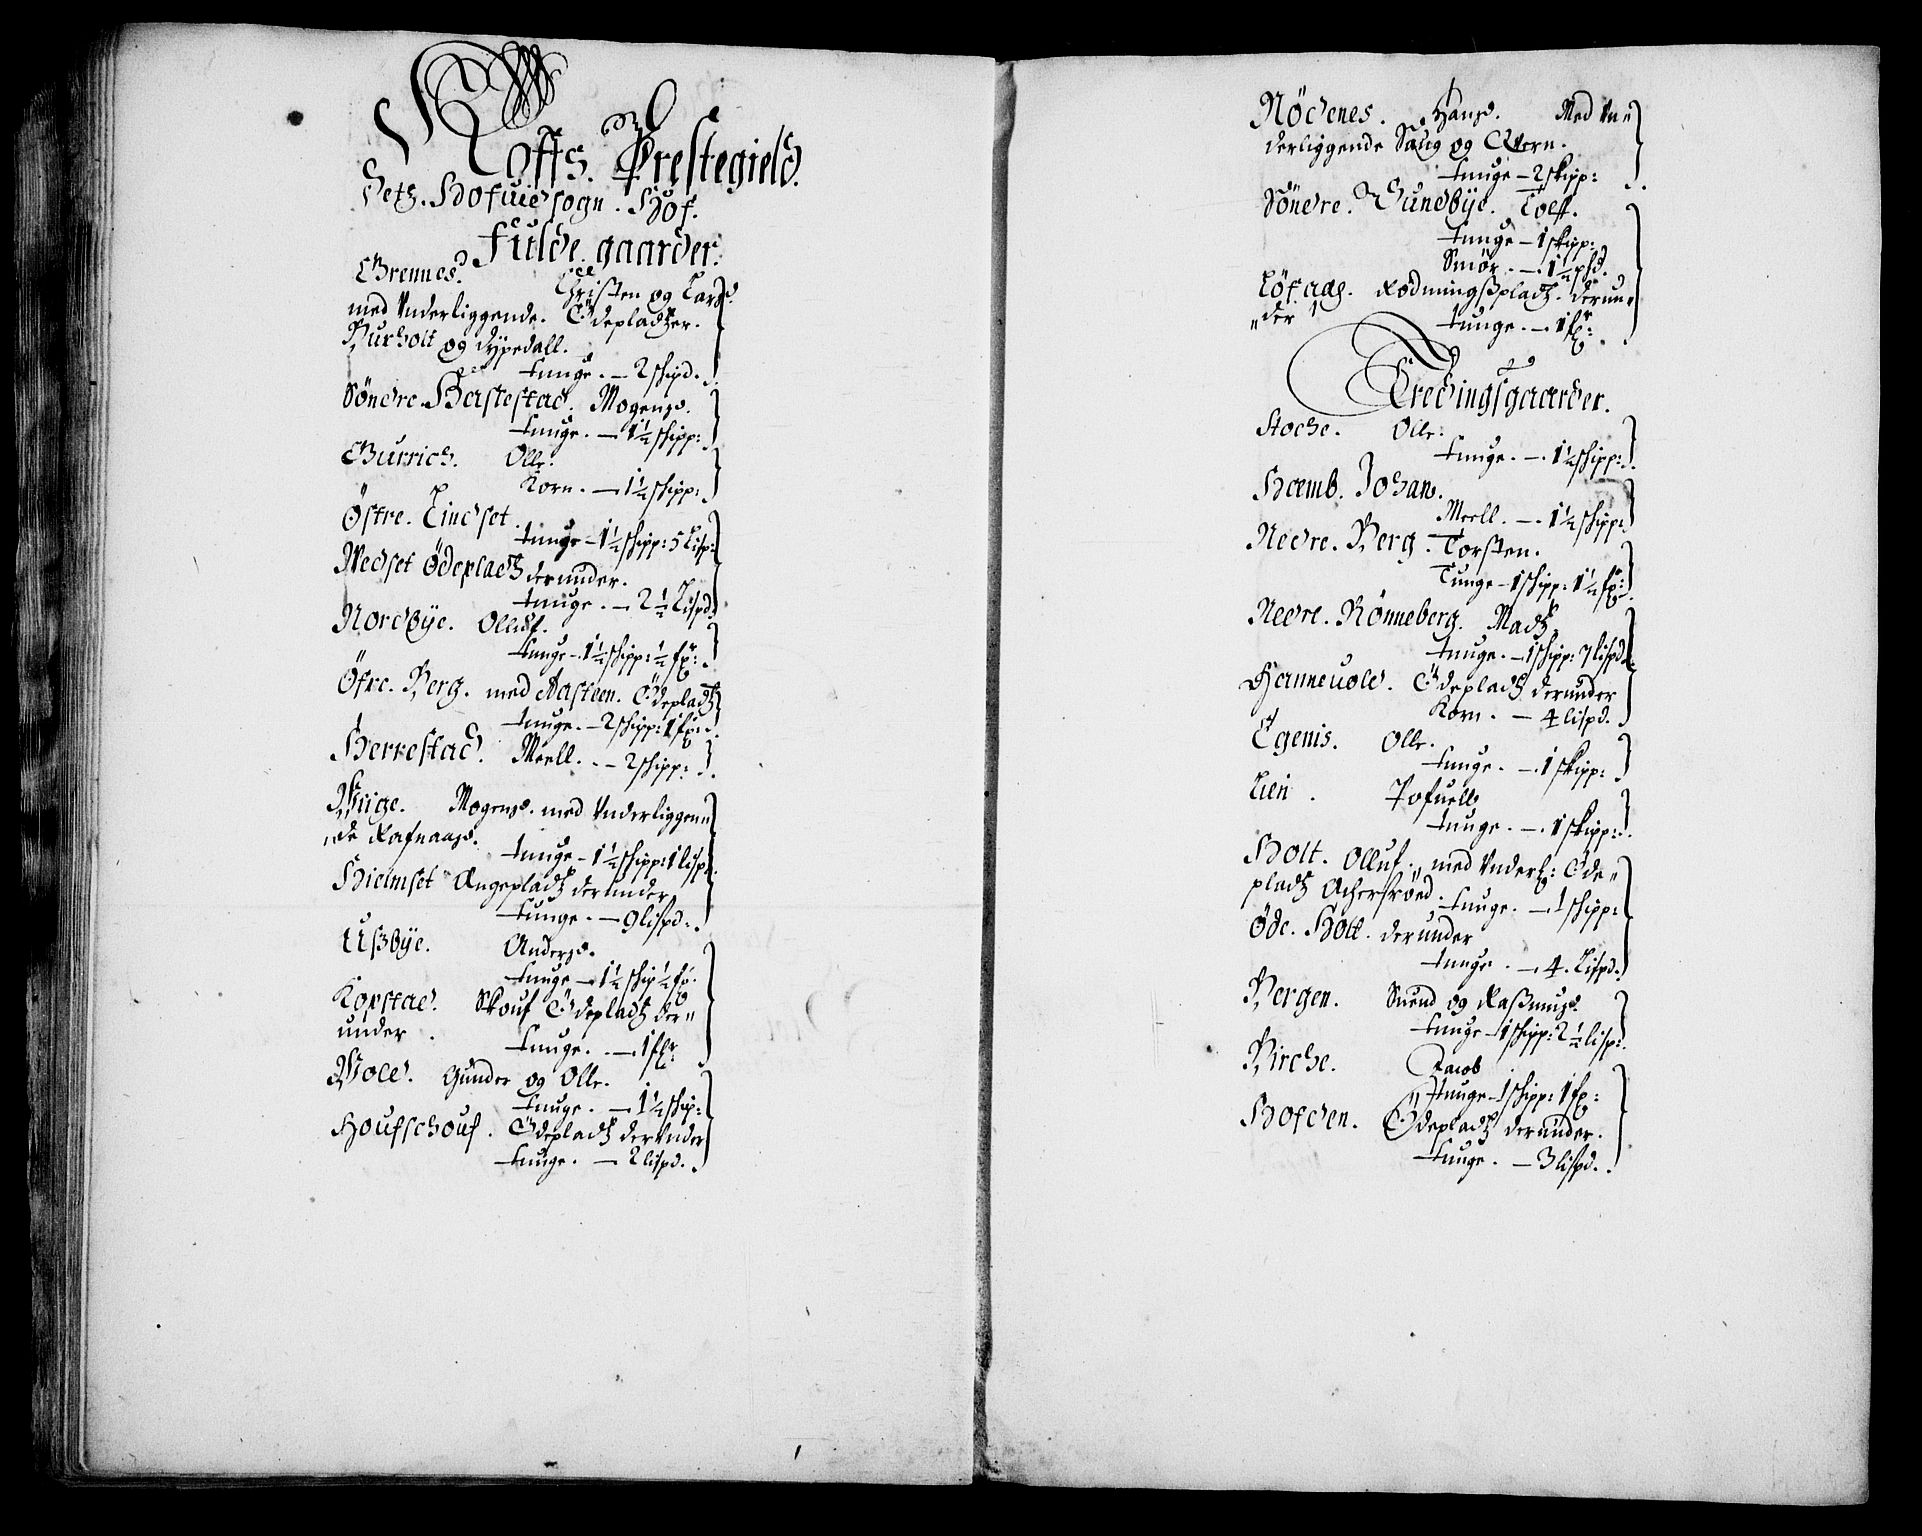 Hoffs. Prestegield.
Hofuidsogn. Hof.
Fulde. gaarder.
Grennes. Christen og Lars
med Vnderliggende. Ödepladtzer.
Burholt og Dypedall.
tunge. — 2 schipd.
Söndre Haslestad. Mogens.
tunge. — 1½ schipp:
Gurrich. Olle.
Korn. — 1½ schipp:
Östre. Lindset.
tunge — 1½ schipp: 5 Lisp:
Wedset Ödepladtz derunder.
tunge. — 2½ Lispd.
Nordbÿe. Olluf.
tunge — 1½ schipp: ½ fr:
Öfre. Berg. med Aasteen. Ödepladtz
tunge. — 2 schipp: 1 fr:
Herrestad. Meell. — 2 schipp:
Wiige. Mogens. med Vnderliggen„
„de Rafnaas.
tunge — 1½ schipp: 1 lisp
Hielmset Engepladtz derunder
tunge. — 9 lispd:
Ußbÿe. Anders.
tunge — 1½ schip ½ fr.
Kopstad. Skouf Ödepladtz der„
under.
tunge. — 1 fr:
Wold. Gunder og Olle.
tunge. — 1½ schip:
Houfschouf. Ödepladtz derVnder
tunge. — 2 lispd.
Nödenes. Hans. Med Vn„
derliggende Saug og Qvern.
tunge — 2 skipp:
Söndre. Sundbÿe. Toeff.
tunge — 1 skipp:
Smör. — 1½ pd.
Löfaas. Rödningspladtz. derun„
„der
tunge. — 1 fr:
Tredingsgaarder.
Stoche. Olle.
tunge. — 1½ schipp:
Haemb. Johan.
Meell. — 1½ schipp:
Nedre. Berg. Torsten.
Tunge — 1 schipp: 1½ fr:
Nedre. Rönneberg. Madtz.
tunge. — 1 schipp: 7 lispd
Hanneuold. Ödepladtz derunder
Korn. — 4 lispd.
Egenis. Olle.
tunge. — 1 skipp:
Lien. Tofuell
tunge. — 1 skipp:
Holt. Olluf. med Vnderl: Öde„
pladtz Achersröed. tunge. — 1 schipp:
Öde. Holt. derunder
tunge. — 4. Lispd.
Bergen. Suend og Raßmus.
tunge — 1 schipp: 2½ lisp:
Birche. Jacob
tunge — 1 schipp: 1 fr:
Hofden. Ödepladtz derunder.
tunge. — 3 lispd.